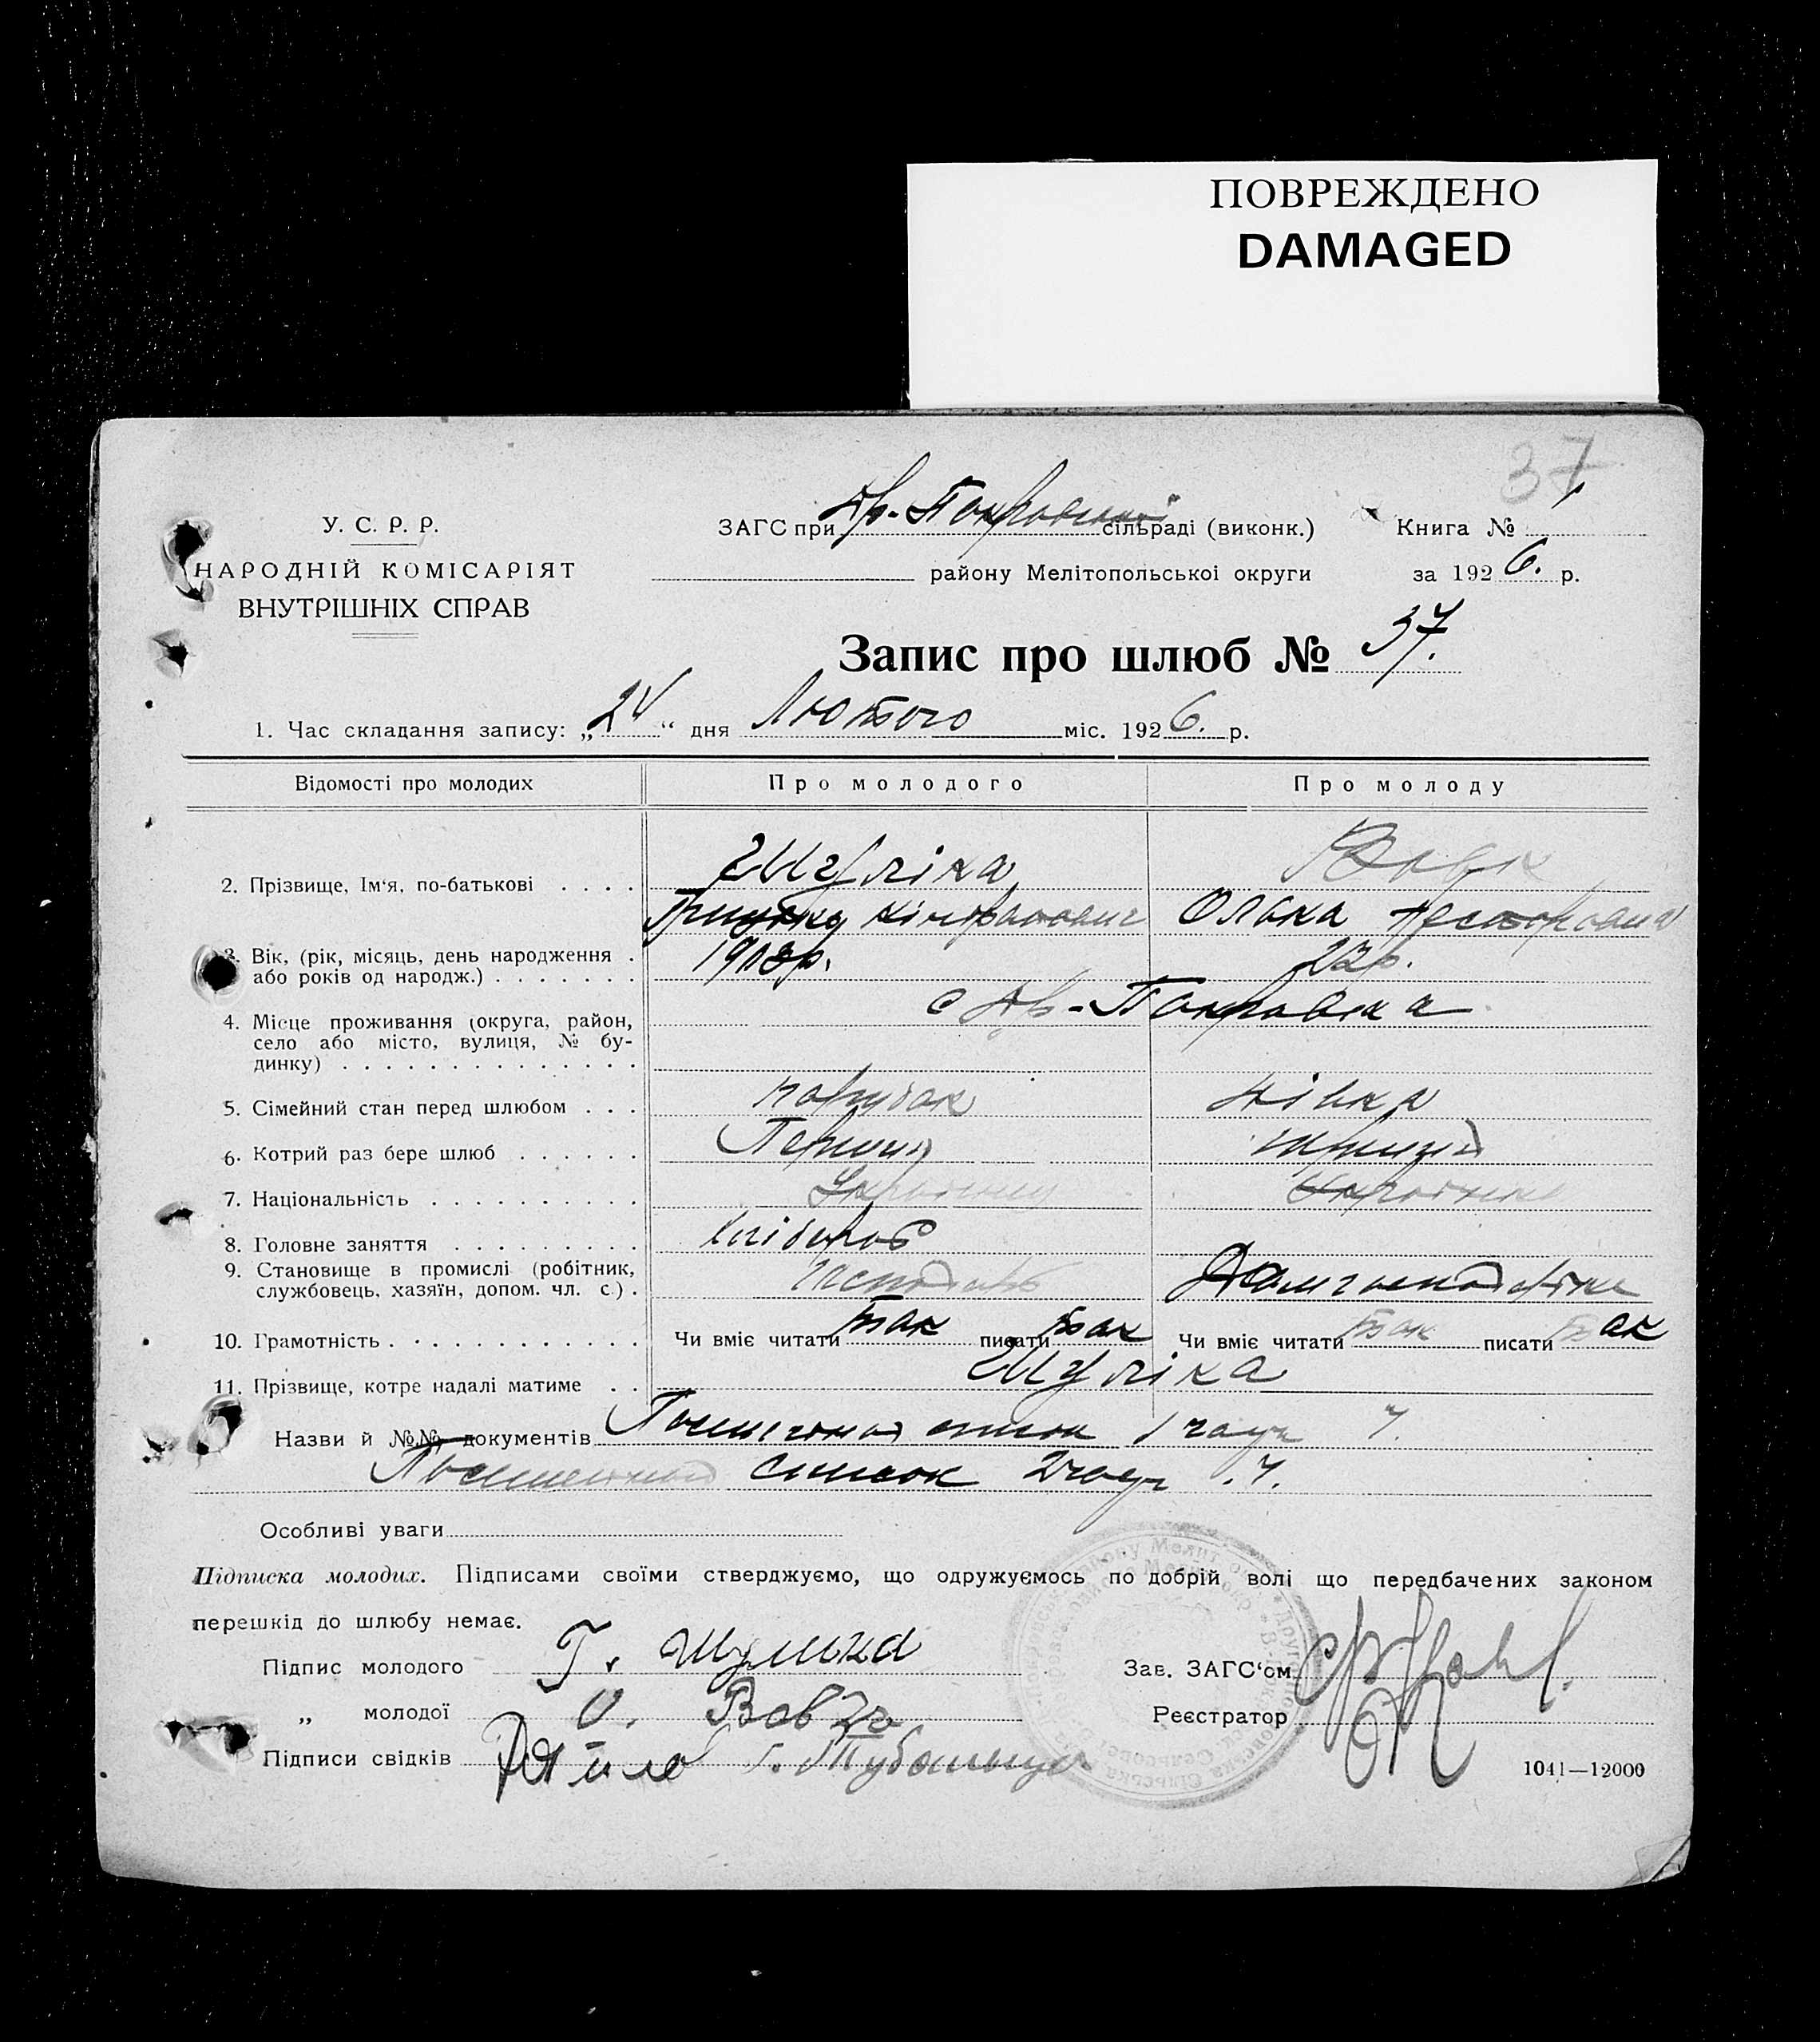 ПОВРЕЖДЕНО
DAMAGED
37
У. С. Р. Р.
НАРОДНІЙ КОМІСАРІЯТ
ВНУТРІШНІХ СПРАВ
ЗАГС при Др-Покровський сільраді (виконк.)
Книга № 1
району Мелітопольськоі округи
за 1926. р.
Запис про шлюб № 37.
1. Час складання запису: „24“ дня Лютого міс. 1926. р.
Відомості про молодих
Про молодого
Про молоду
2. Прізвище, Ім'я, по-батькові . . . .
Шуліка
Вовк
Олька
3. Вік, (рік, місяць, день народження .
або років од народж.) . . . . . . .
22р.
4. Місце проживання (округа, район,
село або місто, вулиця, № бу-
динку) . . . . . . . . . . . . . .
с Др-Покровка
5. Сімейний стан перед шлюбом . . .
парубок
дівка
6. Котрий раз бере шлюб . . . . . .
Перший
перший
7. Національність . . . . . . . . . .
8. Головне заняття . . . . . . . . .
Хлібороб
9. Становище в промислі (робітник,
службовець, хазяїн, допом. чл. с.) .
10. Грамотність . . . . . . . . . . .
Чи вміє читати так писати так
Чи вміє читати так писати так
11. Прізвище, котре надалі матиме . .
Шуліка
Назви й №№ документів
список
список
Особливі уваги
Підписка молодих. Підписами своїми стверджуємо, що одружуємось по добрій волі що передбачених законом
перешкід до шлюбу немає.
Підпис молодого Г. Шулика
Зав. ЗАГС'ом
„ молодої О. Вовк
Реєстратор
Підписи свідків
1041—12000